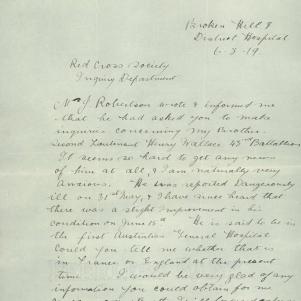 Broken Hill &
District Hospital
6-3-19
Red Cross Society
Inquiry Department
Mr J. Robertson wrote & informed me
that he had asked you to make
inquiries concerning my Brother
Second Lieutenant Henry Wallace 43rd Battalion
It seems so hard to get any news
of him at all, & I am naturally very
anxious. He was reported Dangerously
ill on 31st May, & I have since heard that
there was a slight improvement in his
condition on June 15th. He is said to be in
the first Australian General Hospital
Could you tell me whether that is
in France or England at the present
time. I would be very glad of any
information you could obtain for me